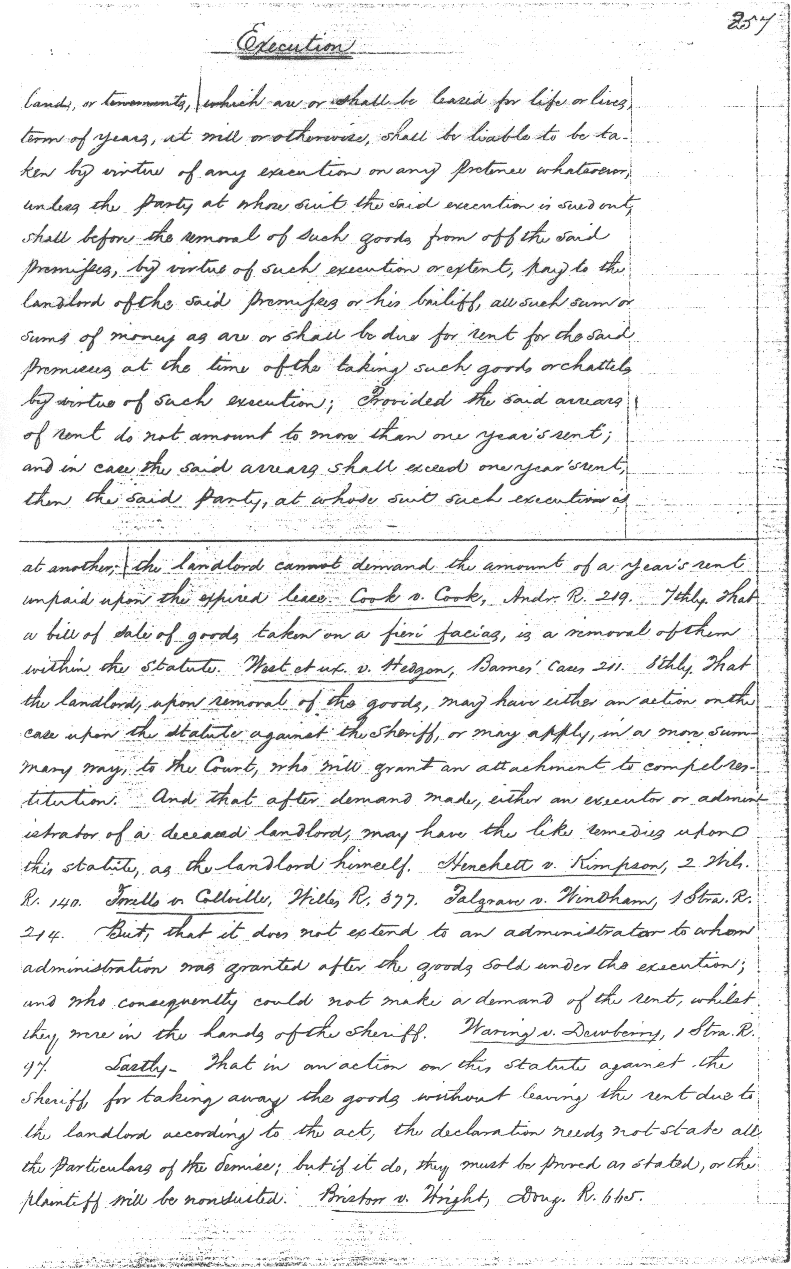 257
Execution
lands, or tenements, which are or shall be leased for life or lives,
term of years, at will or otherwise, shall be liable to be ta-
ken by virtue of any execution on any pretence whatsoever,
unless the Party at whose suit the said execution is sued out,
shall before the removal of such goods from off the said
premisses, by virtue of such execution or extent, pay to the
landlord of the said premisses or his bailiff, all such sum or
sums of money as are or shall be due for rent for the said
premisses at the time of the taking such goods or chattels
by virtue of such execution; Provided the said arrears
of rent do not amount to more than one year's rent;
and in case the said arrears shall exceed one year's rent,
then the said Party, at whose suit such execution is
at another; the landlord cannot demand the amount of a year's rent
unpaid upon the expired lease. Cook v. Cook, Andr. R. 219. 7thly. That
a bill of sale of goods taken on a fieri facias, is a removal of them
within the statute. West et ux. v. Hedgon, Barnes' Cases 211. 8thly. That
the landlord, upon removal of the goods, may have either an action on the
case upon the statute against the Sheriff, or may apply, in a more sum-
mary way, to the Court, who will grant an attachment to compel res-
titution. And that after demand made, either an executor or admin-
istrator of a deceased landlord, may have the like remedies upon
this statute, as the landlord himself. Henchett v. Kimpson, 2 Wils.
R. 140. Torells v. Collville, Willes R. 377. Palgrave v. Windham, 1 Stra. R.
214. But, that it does not extend to an administrator to whom
administration was granted after the goods sold under the execution;
and who consequently could not make a demand of the rent, whilst
they were in the hands of the Sheriff. Waring v. Dewberry, 1 Stra. R.
97. Lastly- That in an action on this statute against the
Sheriff, for taking away the goods without leaving the rent due to
the landlord according to the act, the declaration needs not state all
the particulars of the demise; but if it do, they must be proved as stated, or the
plaintiff will be nonsuited. Bristow v. Wright, Doug. R. 665.